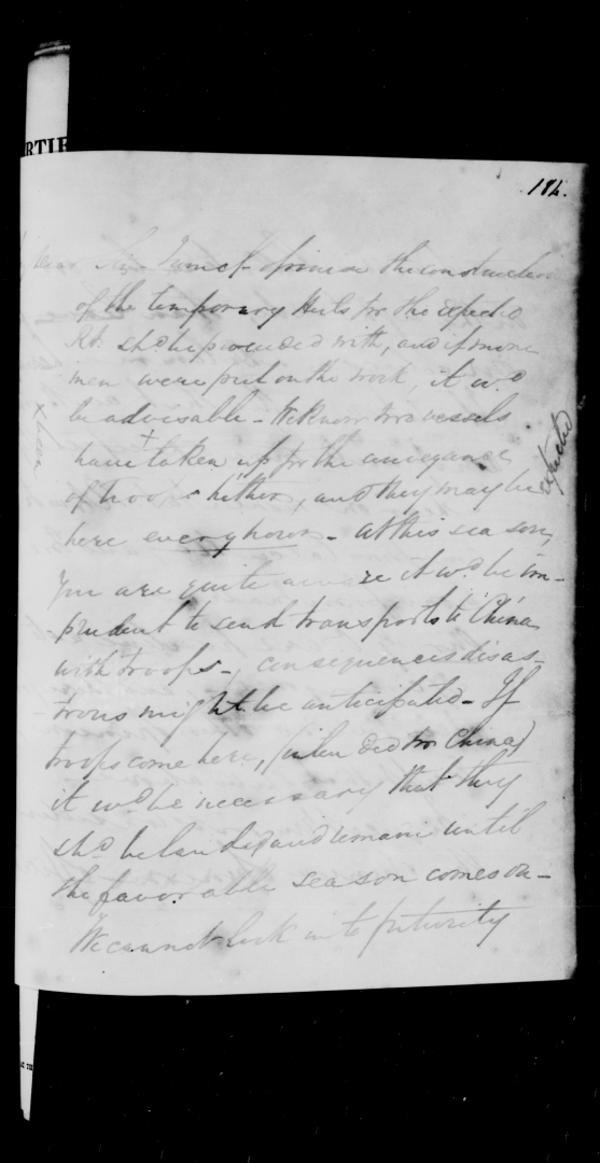 RTIF
184.
Dear Sir, I am of opinion the construction
of the temporary Huts for the expected
Rt. shd. be proceeded with, and if more
men were put on the work, it wd.
be advisable - We know two vessels
have + taken up for the conveyance
x been
of troops hither, and they may be expected
here every hour - At this season,
you are quite aware it wd. be im-
prudent to send transports to China
with troops -, consequences disas-
trous might be anticipated - If
troops come here, (intended for China)
it wd. be necessary that they
shd. be landed and remain until
the favorable season comes on -
We cannot look into futurity